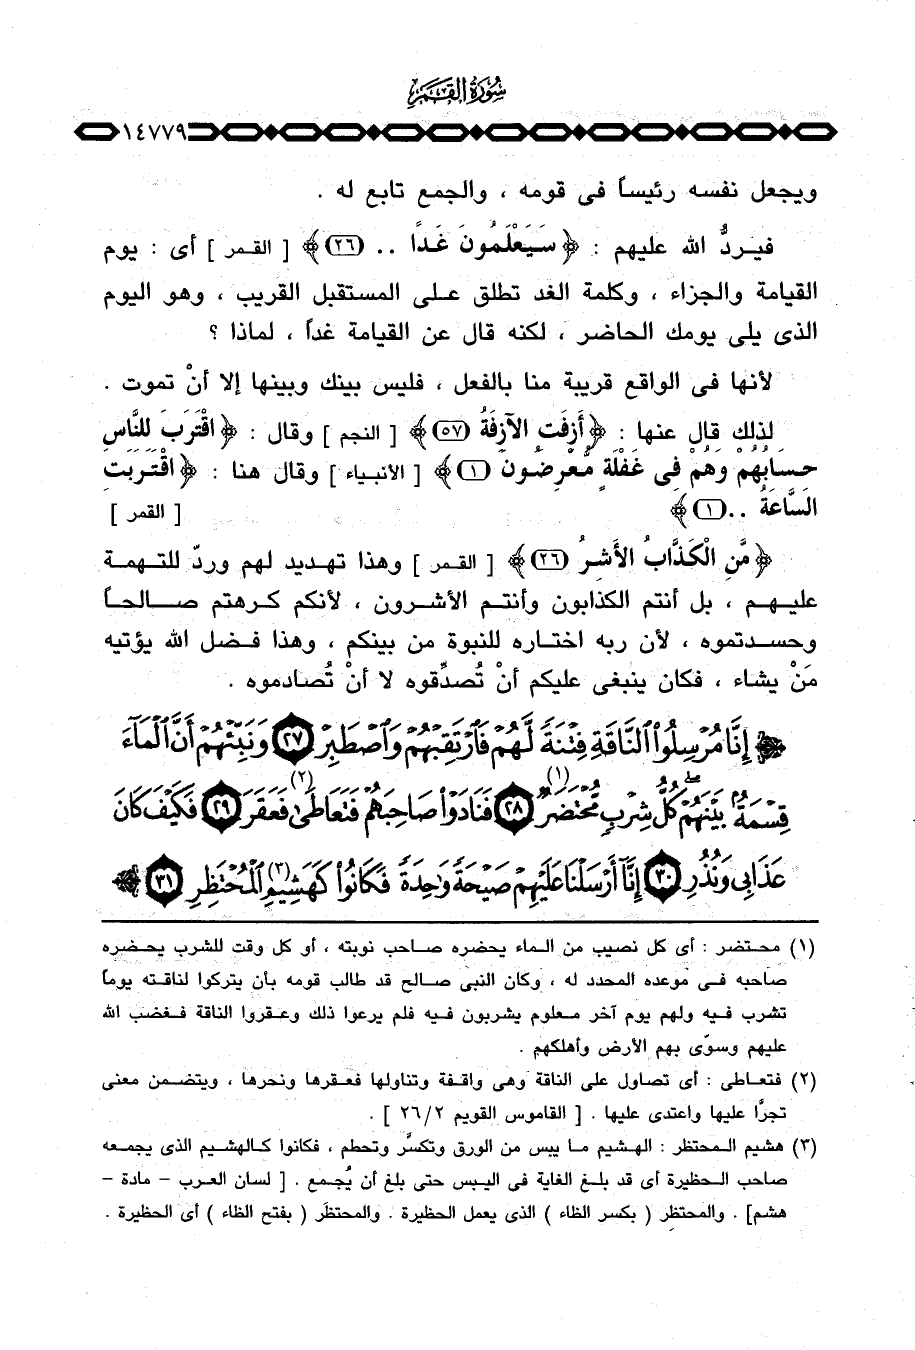 سُورَةُ القَمَر
١٤٧٧٩
ويجعل نفسه رئيساً فى قومه ، والجمع تابع له .
فيردُّ الله عليهم : ﴿ سَيَعْلَمُونَ غَدًا .. (٢٦)﴾ [ القمر ] أى : يوم
القيامة والجزاء ، وكلمة الغد تطلق على المستقبل القريب ، وهو اليوم
الذى يلى يومك الحاضر ، لكنه قال عن القيامة غداً ، لماذا ؟
لأنها فى الواقع قريبة منا بالفعل ، فليس بينك وبينها إلا أنْ تموت .
لذلك قال عنها : ﴿ أَزِفَتِ الآزِفَةُ (٥٧)﴾ [ النجم ] وقال : ﴿ اقْتَرَبَ لِلنَّاسِ
حِسَابُهُمْ وَهُمْ فِى غَفْلَةٍ مُّعْرِضُونَ (١)﴾ [ الأنبياء ] وقال هنا : ﴿ اقْتَرَبَتِ
السَّاعَةُ ..(١)﴾ [ القمر ]
﴿ مَّنِ الْكَذَّابُ الأَشِرُ (٢٦)﴾ [ القمر ] وهذا تهديد لهم وردّ للتهمة
عليهم ، بل أنتم الكذابون وأنتم الأشرون ، لأنكم كرهتم صالحاً
وحسدتموه ، لأن ربه اختاره للنبوة من بينكم ، وهذا فضل الله يؤتيه
مَنْ يشاء ، فكان ينبغى عليكم أنْ تُصدِّقوه لا أنْ تُصادموه .
﴿ إِنَّا مُرْسِلُوا۟ ٱلنَّاقَةِ فِتْنَةً لَّهُمْ فَٱرْتَقِبْهُمْ وَٱصْطَبِرْ (٢٧) وَنَبِّئْهُمْ أَنَّ ٱلْمَآءَ
قِسْمَةٌۢ بَيْنَهُمْ ۖ كُلُّ شِرْبٍ مُّحْتَضَرٌ (١) (٢٨) فَنَادَوْا۟ صَاحِبَهُمْ فَتَعَاطَىٰ (٢) فَعَقَرَ (٢٩) فَكَيْفَ كَانَ
عَذَابِى وَنُذُرِ (٣٠) إِنَّآ أَرْسَلْنَا عَلَيْهِمْ صَيْحَةً وَٰحِدَةً فَكَانُوا۟ كَهَشِيمِ (٣) ٱلْمُحْتَظِرِ (٣١) ﴾
(١) محتضر : أى كل نصيب من الماء يحضره صاحب نوبته ، أو كل وقت للشرب يحضره
صاحبه فى موعده المحدد له ، وكان النبى صالح قد طالب قومه بأن يتركوا لناقته يوماً
تشرب فيه ولهم يوم آخر معلوم يشربون فيه فلم يرعوا ذلك وعقروا الناقة فغضب الله
عليهم وسوّى بهم الأرض وأهلكهم .
(٢) فتعاطى : أى تصاول على الناقة وهى واقفة وتناولها فعقرها ونحرها ، ويتضمن معنى
تجرَّأ عليها واعتدى عليها . [ القاموس القويم ٢٦/٢ ] .
(٣) هشيم المحتظر : الهشيم ما يبس من الورق وتكسَّر وتحطم ، فكانوا كالهشيم الذى يجمعه
صاحب الحظيرة أى قد بلغ الغاية فى اليبس حتى بلغ أن يُجمع . [ لسان العرب - مادة -
هشم] . والمحتظِر ( بكسر الظاء ) الذى يعمل الحظيرة . والمحتظَر ( بفتح الظاء ) أى الحظيرة .